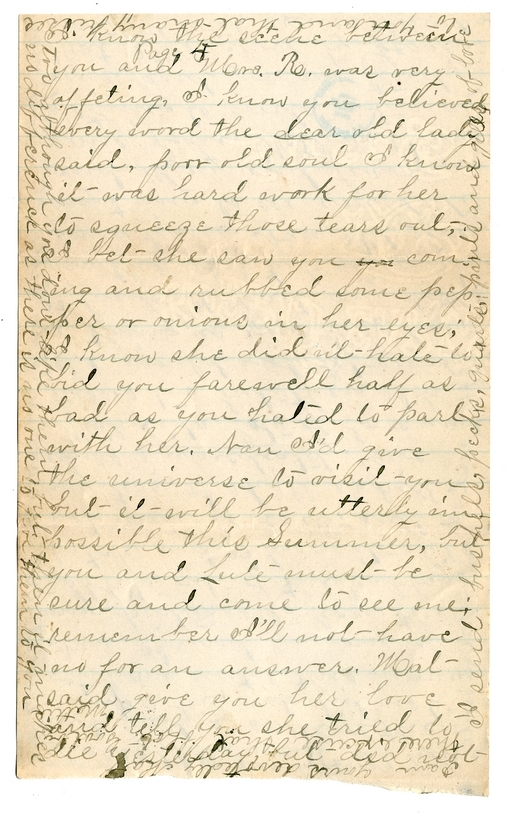 Page 4
I know the scene between
you and Mrs. R. was very
affeting, I know you believed
every word the dear old lady
said, poor old soul I know
it was hard work for her
to squeeze those tears out,
I bet she saw you com-
ing and rubbed some pep-
per or onions in her eyes;
I know she did n't hate to
bid you farewell half as
bad as you hated to part
with her. Nan I'd give
the universe to visit you
but it will be utterly im
possible this Summer, but
you and Lute must be
sure and come to see me;
remember I'll not have
no for an answer. Mat
said give you her love
and tell you she tried to
die but did not
I send bushels, pecks, quarts, pints and of love
to you and
no difference as there is no one to them to you
yours devotedly